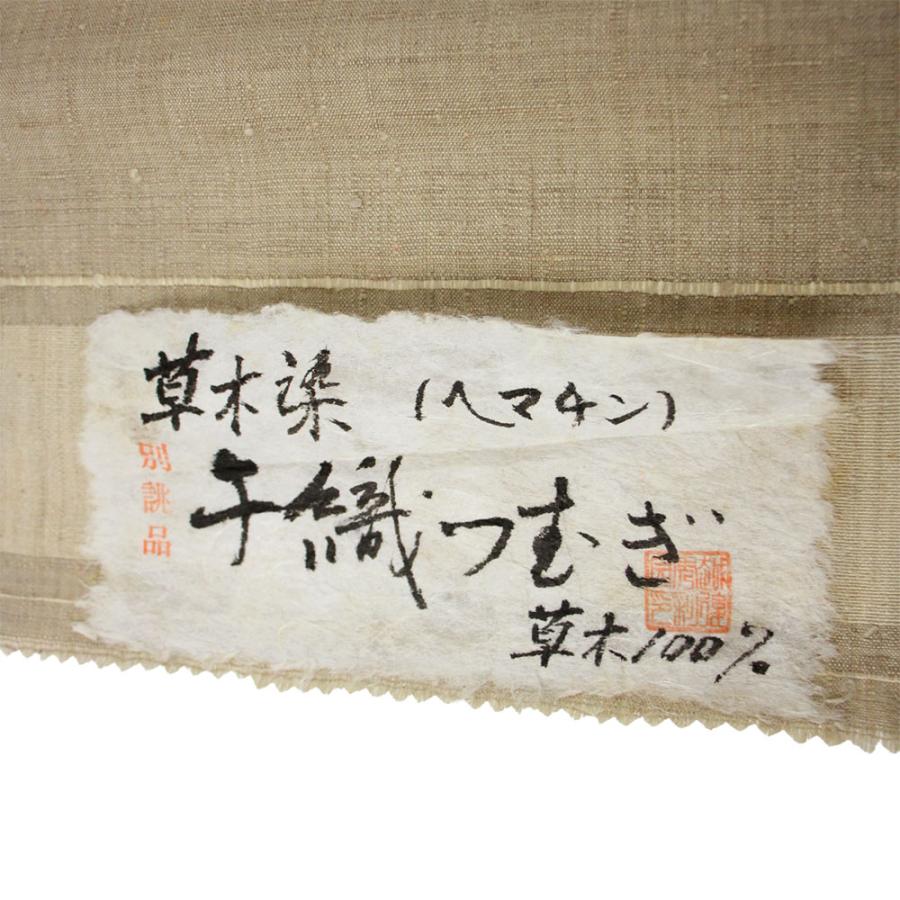 草木染 (ヘマチン)
別誂品
手織つむぎ
草木100%